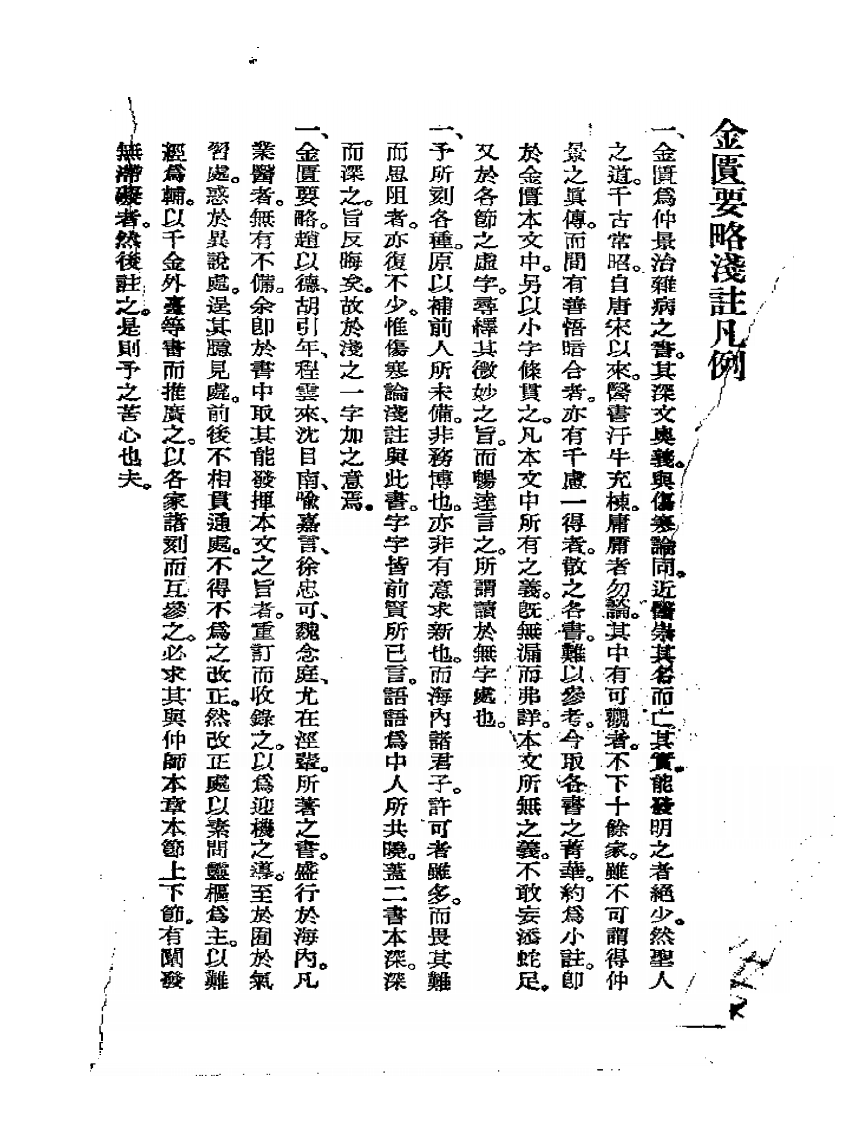 金匱要略淺註凡例
一、金匱爲仲景治雜病之書。其深文奧義。與傷寒論同。近醫崇其名而亡其實。能發明之者絕少。然聖人
之道。千古常昭。自唐宋以來。醫書汗牛充棟。庸庸者勿論。其中有可觀者。不下十餘家。雖不可謂得仲
景之眞傳。而間有善悟暗合者。亦有千慮一得者。散之各書。難以參考。今取各書之菁華。約爲小註。卽
於金匱本文中。另以小字條貫之。凡本文中所有之義。旣無漏而弗詳。本文所無之義。不敢妄添蛇足。
又於各節之虛字。尋繹其微妙之旨。而暢達言之。所謂讀於無字處也。
一、予所刻各種。原以補前人所未備。非務博也。亦非有意求新也。而海內諸君子。許可者雖多。而畏其難
而思阻者。亦復不少。惟傷寒論淺註與此書。字字皆前賢所已言。語語爲中人所共曉。蓋二書本深。深
而深之。旨反晦矣。故於淺之一字加之意焉。
一、金匱要略。趙以德、胡引年、程雲來、沈目南、喻嘉言、徐忠可、魏念庭、尤在涇輩。所著之書。盛行於海內。凡
業醫者。無有不備。余卽於書中取其能發揮本文之旨者。重訂而收錄之。以爲迎機之導。至於囿於氣
習處。惑於異說處。逞其臆見處。前後不相貫通處。不得不爲之改正。然改正處以素問靈樞爲主。以難
經爲輔。以千金外臺等書而推廣之。以各家諸刻而互參之。必求其與仲師本章本節上下節。有闡發
無滯礙者。然後註之。是則予之苦心也夫。